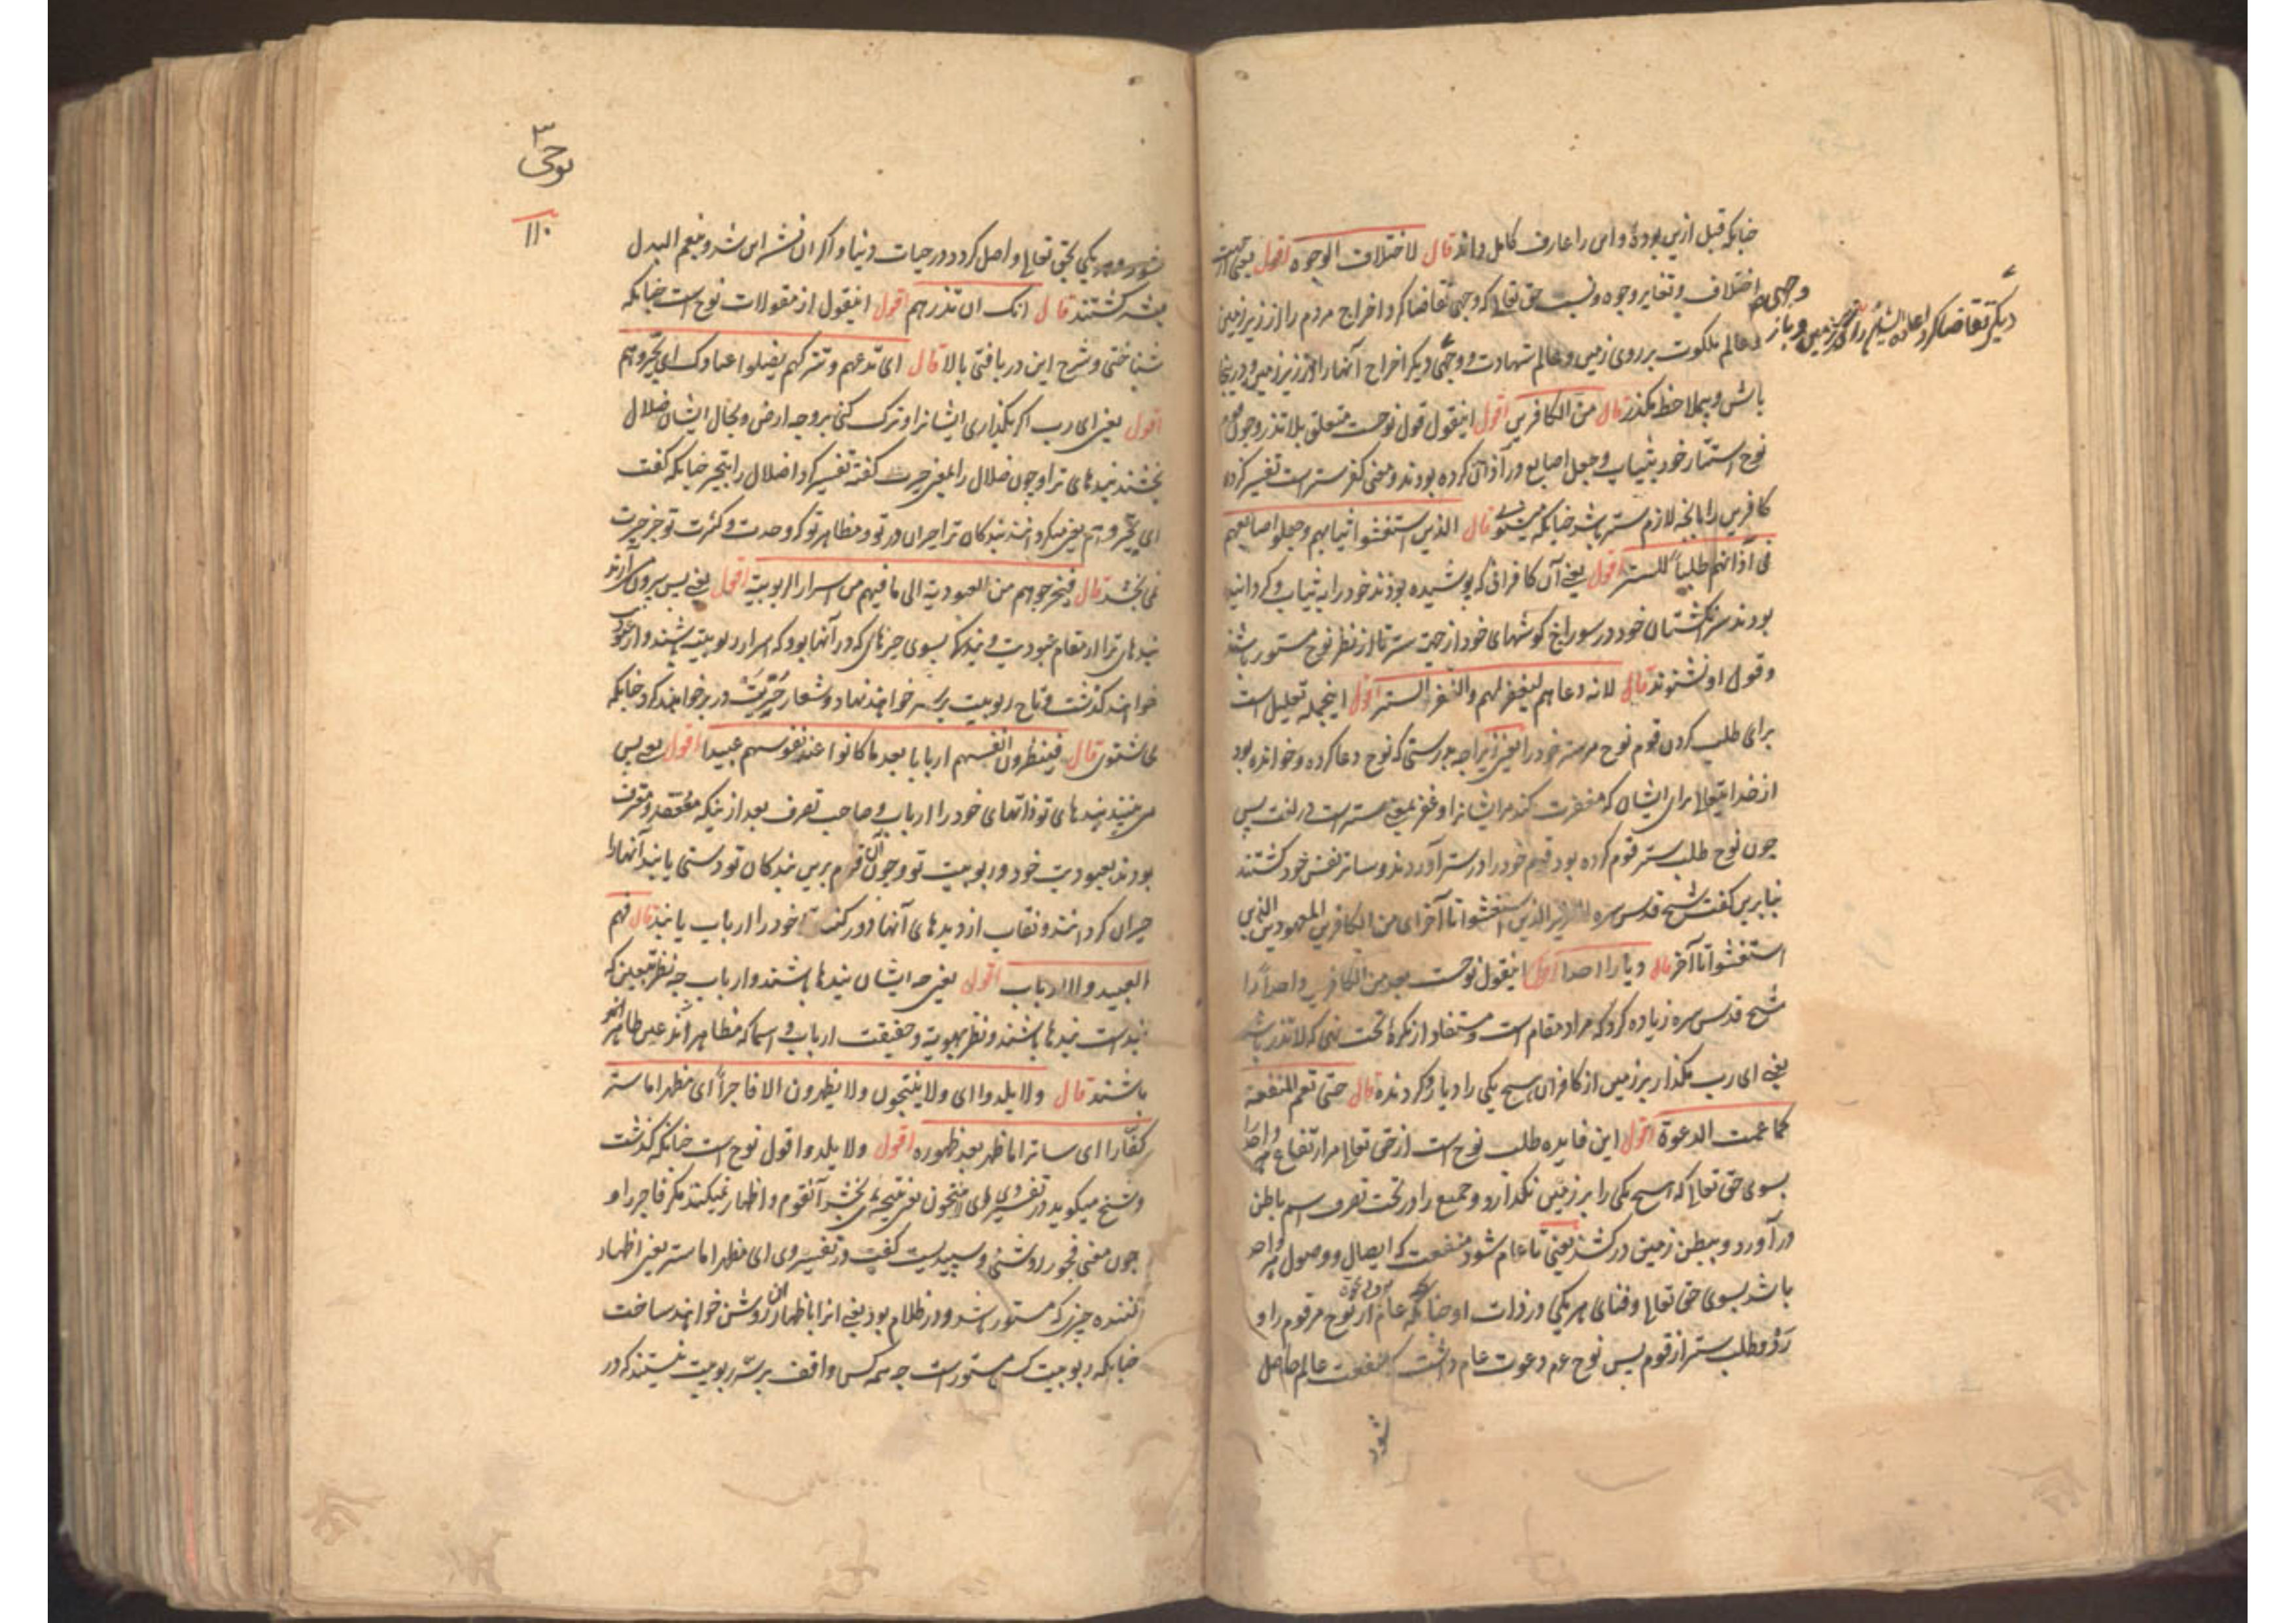 چنانکه قبل ازین بوده و این را عارف کامل داند قال لاختلاف الوجوه اقول یعنی
اختلاف و تغایر وجوه و نسب حق تعالی که وجهی تقاضا کرد اخراج مردم را از زیر زمین
وجهی
دیگر تقاضا کرد اعاده
عالم ملکوت بر روی زمین و عالم شهادت و وجهی دیگر اخراج آنها را از زیر زمین و در اینجا
باش و بملاحظه بگذر قال من الکافرین اقول اینقول قول نوحست متعلق بلا تذر و چون قوم
نوح استتار خود بثیاب و جعل اصابع در آذان کرده بودند و معنی کفر ستر است تفسیر کرده
کافرین را بانچه لازم ستر باشد چنانکه میشنوی قال الذین استغشوا ثیابهم و جعلوا اصابعهم
فی آذانهم طلبا للستر اقول یعنی آن کافرانی که پوشیده بودند خود را به ثیاب و گردانیده
بودند سر انگشتان خود در سوراخ گوشهای خود از جهت ستر تا از نظر نوح مستور باشند
و قول او نشنوند قال لانه دعاهم لیغفر لهم والغفر الستر اقول اینجمله تعلیل است
برای طلب کردن قوم نوح مر ستر خود را یعنی زیرا چه بدرستی که نوح دعا کرده و خوانده بود
از خدایتعالی برای ایشان که مغفرت کند مر ایشانرا و غفر بمعنی ستر است در لغت پس
چون نوح طلب ستر قوم کرده بود قوم خود را در ستر آوردند و ساتر نفس خود گشتند
بنابرین گفت شیخ قدس سره الذین استغشوا تا آخر ای من الکافرین المعهودین الذین
استغشوا تا آخر قال دیارا احدا اقول اینقول نوحست بعد من الکافرین واحدا را
شیخ قدس سره زیاده کرد که مراد مقام است و مستفاد از نکره تحت نهی که لا تذر باشد
یعنی ای رب مگذار بر زمین از کافران هیچ یکی را دیار و گردنده قال حتی تعم المنفعة
کما عمت الدعوة اقول این فایده طلب نوح است از حق تعالی مر ارتفاع هر واحد را
بسوی حق تعالی که هیچ یکی را بر زمین نگذارد و جمیع را در تحت تصرف اسم باطن
در آورد و ببطن زمین در کشد یعنی تا عام شود منفعت که ایصال و وصول هر واحد
باشد بسوی حق تعالی و فنای هر یکی در ذات او چنانکه عام از نوح مر قوم را و
و طلب ستر از قوم پس نوح عم دعوت عام داشت که منفعت عالم حاصل
شود
نوحی
۱۱۰
یکی بحق تعالی واصل کرد در حیات دنیا و اگر ان نشد این شد و نعم البدل
گشتند قال انک ان تذرهم اقول اینقول از مقولات نوح است چنانکه
شناختی و شرح این دریافتی بالا قال ای تدعهم و تترکهم یضلوا عبادک ای یحیروهم
اقول یعنی ای رب اگر بگذاری ایشانرا و ترک کنی بر وجه ارض و بحال ایشان ضلال
بخشند بندهای ترا و چون ضلال را بمعنی حیرت گفته تفسیر کرد اضلال را بتحیر چنانکه گفت
ای یحیروهم یعنی میگردانند بندگان ترا حیران در تو و مظاهر تو که وحدت و کثرت تو جز حیرت
نمی بخشد قال فیخرجوهم من العبودیة الی ما فیهم من اسرار الربوبیة اقول یعنی پس بیرون می آرند
بندهای ترا از مقام عبودیت و بندگی بسوی چیزهای که در آنها بود که اسرار ربوبیت باشند و از
خواهند گذشت و تاج ربوبیت بر سر خواهند نهاد و شعار حریت در بر خواهند کرد چنانکه
می شنوی قال فینظرون انفسهم اربابا بعد ما کانوا عند نفوسهم عبیدا اقول یعنی پس
می بینند بندهای تو ذاتهای خود را ارباب و صاحب تصرف بعد ازینکه معتقد و معترف
بودند بعبودیت خود و ربوبیت تو و چون آن قوم برین بندگان تو دستی یابند آنها را
حیران گردانند و نقاب از دیدهای آنها دور کنند تا خود را ارباب یابند قال فهم
العبید والارباب اقول یعنی چه ایشان بندها باشند و ارباب چه نظر بتعین که
بند است بندها باشند و نظر بهویة و حقیقت ارباب و اسما که مظاهر اند عین ظاهر
باشند قال ولا یلدوا ای ولا ینتجون ولا یظهرون الا فاجرا ای مظهرا ما ستر
کفارا ای ساترا ما ظهر بعد ظهوره اقول ولا یلدوا قول نوح است چنانکه گذشت
و شیخ میگوید در تفسیر وی ای لا ینتجون یعنی نتیجه نمی بخشد آنقوم و اظهار نمیکنند مگر فاجر را و
چون معنی فجور روشنی و سپیدیست گفت در تفسیر وی ای مظهرا ما ستر یعنی اظهار
کننده چیزی که مستور باشد و در ظلام بود یعنی انرا باظهار این روشن خواهند ساخت
چنانکه ربوبیت که مستور است چه همه کس واقف بر سر ربوبیت نیستند که در